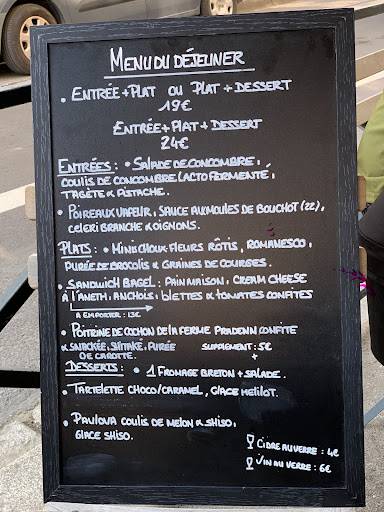 MENU DU DÉJEUNER
• ENTRÉE + PLAT OU PLAT + DESSERT
19€
ENTRÉE + PLAT + DESSERT
24€
ENTRÉES : • SALADE DE CONCOMBRE,
COULIS DE CONCOMBRE LACTOFERMENTÉ,
TAGÈTE & PISTACHE.
• POIREAUX VAPEUR, SAUCE AUX MOULES DE BOUCHOT (22),
CELERI BRANCHE & OIGNONS.
PLATS : • MINIS CHOUX-FLEURS RÔTIS, ROMANESCO,
PURÉE DE BROCOLIS & GRAINES DE COURGES.
• SANDWICH BAGEL : PAIN MAISON, CREAM CHEESE
À L'ANETH, ANCHOIS, BLETTES & TOMATES CONFITES
À EMPORTER : 13€
• POITRINE DE COCHON DE LA FERME PRADENN CONFITE
& SNACKÉE, SHITAKÉ, PURÉE SUPPLEMENT : 5€
DE CAROTTE. +
DESSERTS : • 1 FROMAGE BRETON + SALADE.
• TARTELETTE CHOCO/CARAMEL, GLACE MELILOT.
• PAVLOVA COULIS DE MELON & SHISO,
GLACE SHISO.
CIDRE AU VERRE : 4€
VIN AU VERRE : 6€